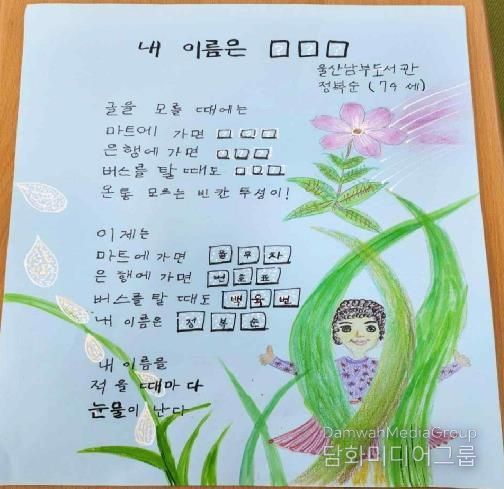 내 이름은 □□□
울산남부도서관
정복순 (79세)
글을 모를 때에는
마트에 가면 □□□
은행에 가면 □□□
버스를 탈 때도 □□□
온통 모르는 빈칸 투성이!
이제는
마트에 가면 율무차
은행에 가면 번호표
버스를 탈 때도 백육번
내 이름은 정복순
내 이름을
적을 때마다
눈물이 난다
DamwahMediaGroup
담화미디어그룹